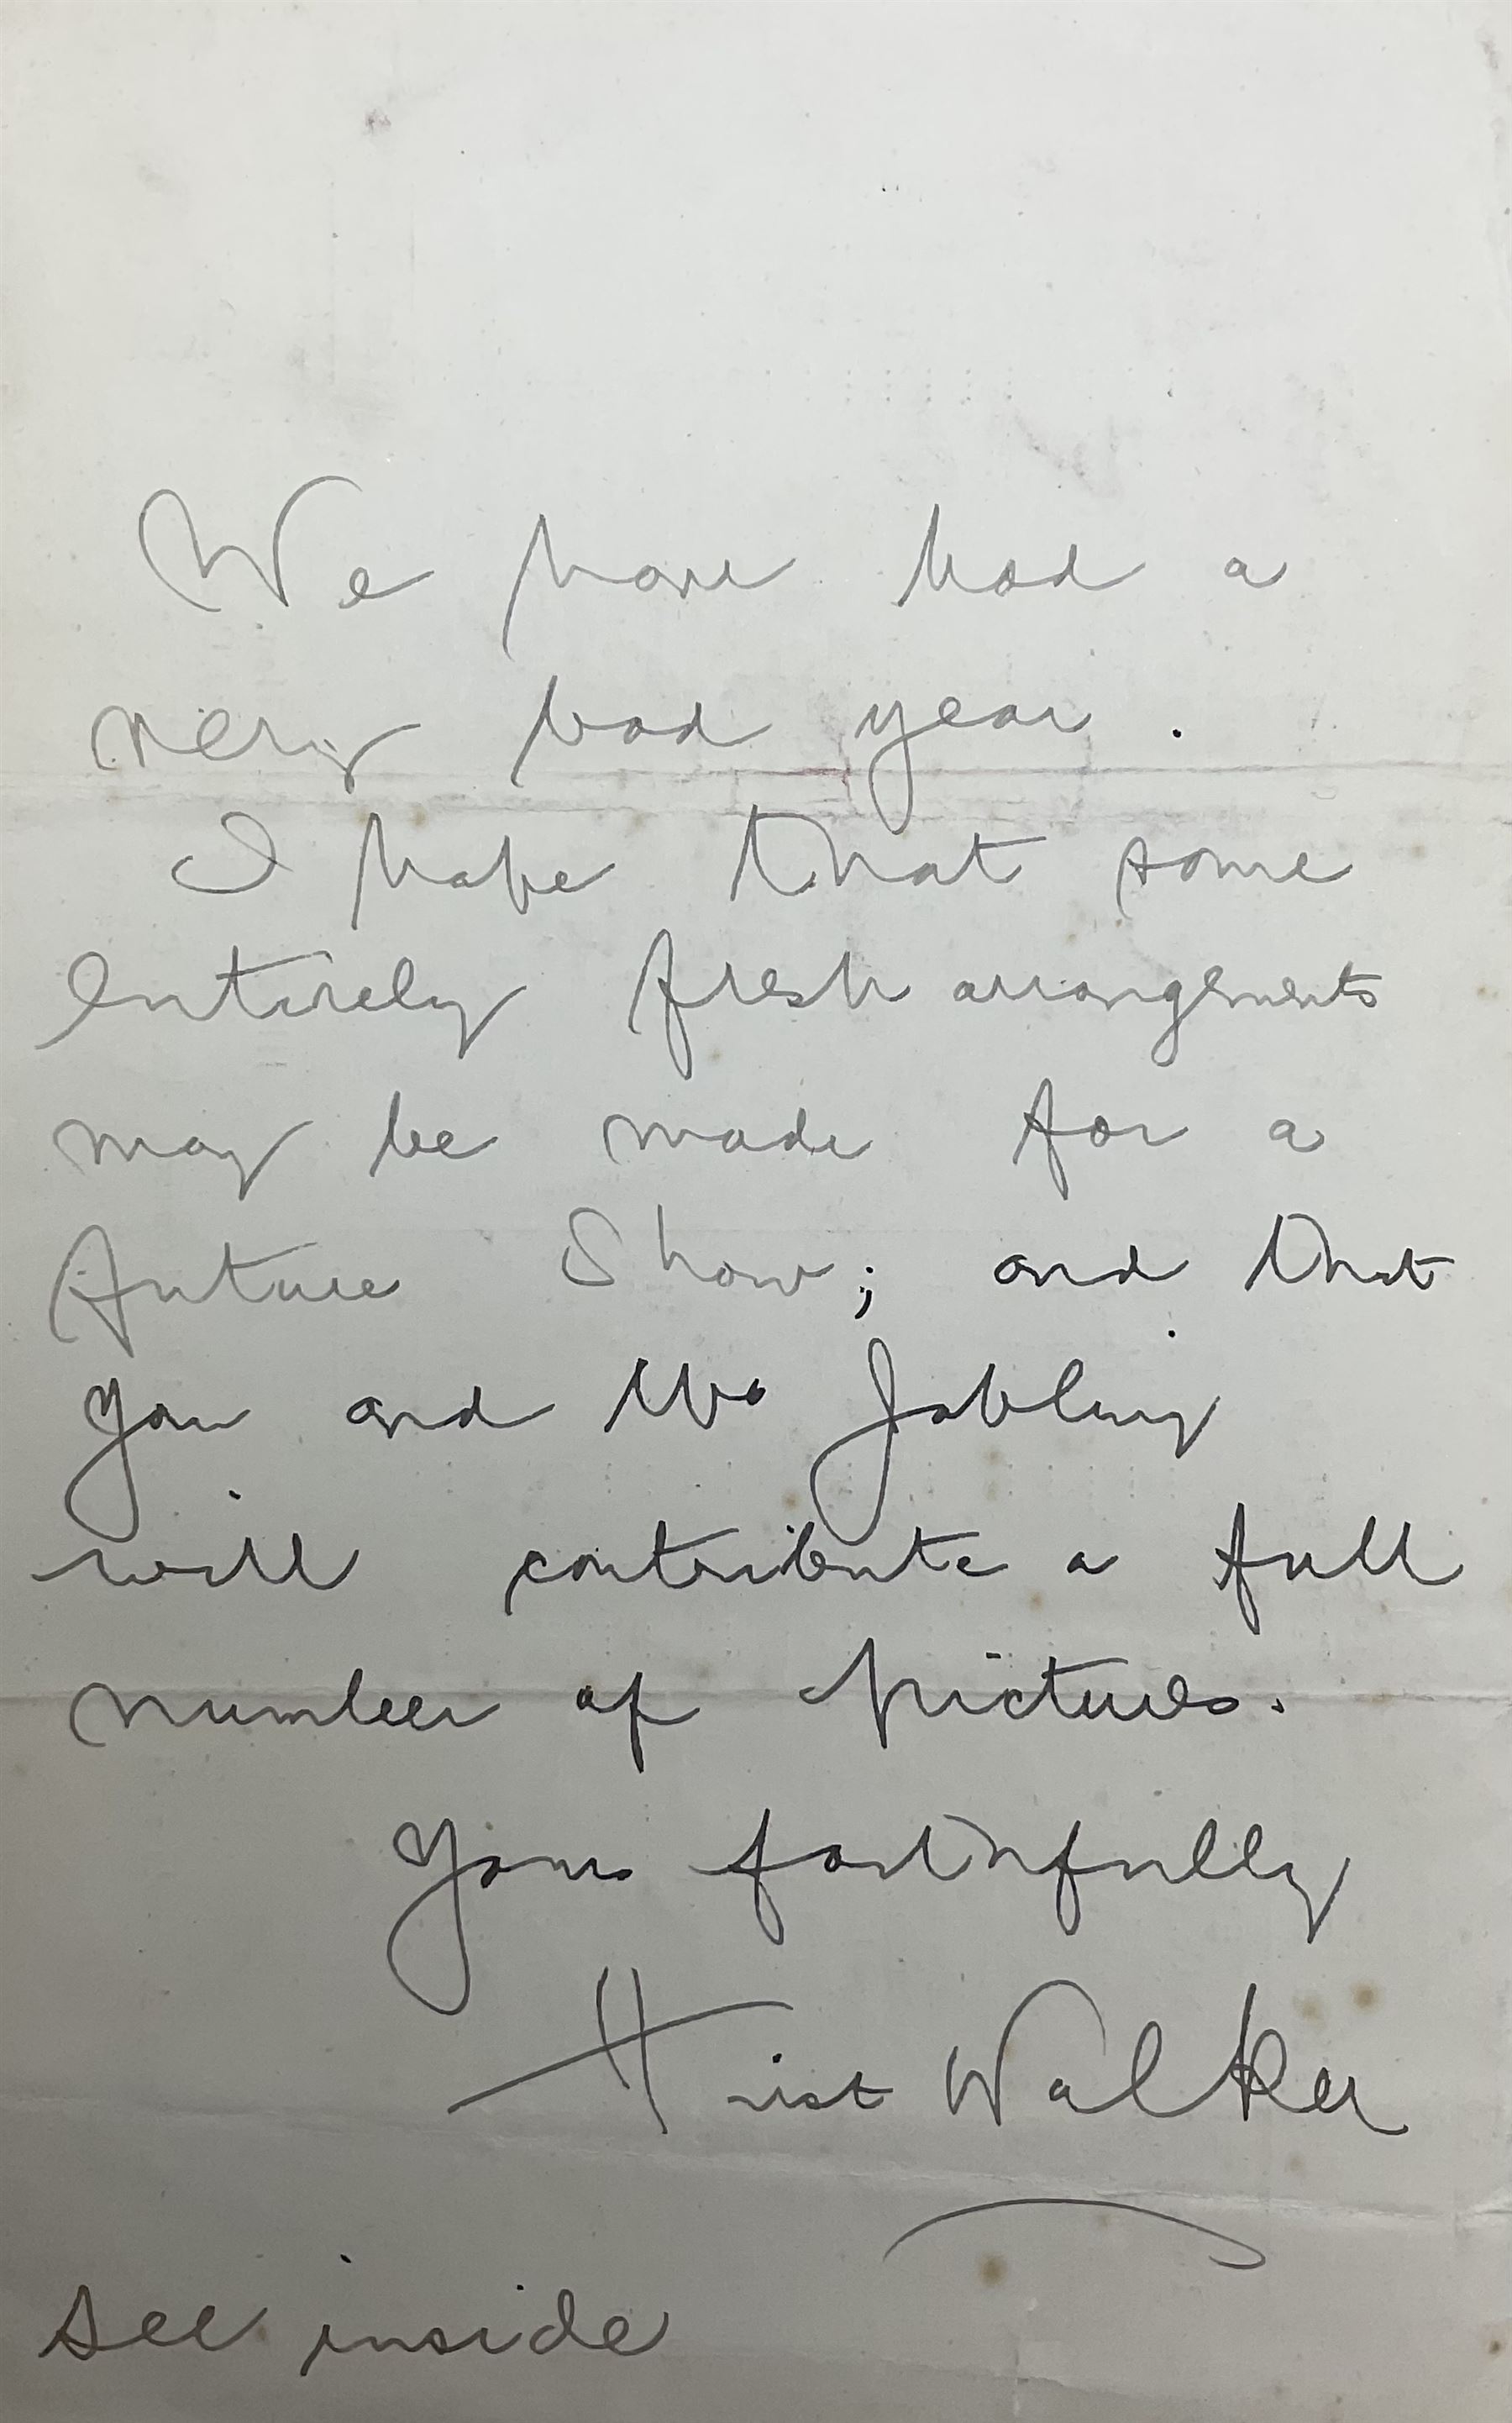 We have had a
very bad year.
I hope that some
entirely fresh arrangements
may be made for a
future Show; and that
you and Mr Jobling
will contribute a full
number of pictures.
Yours faithfully
Hirst Walker
see inside